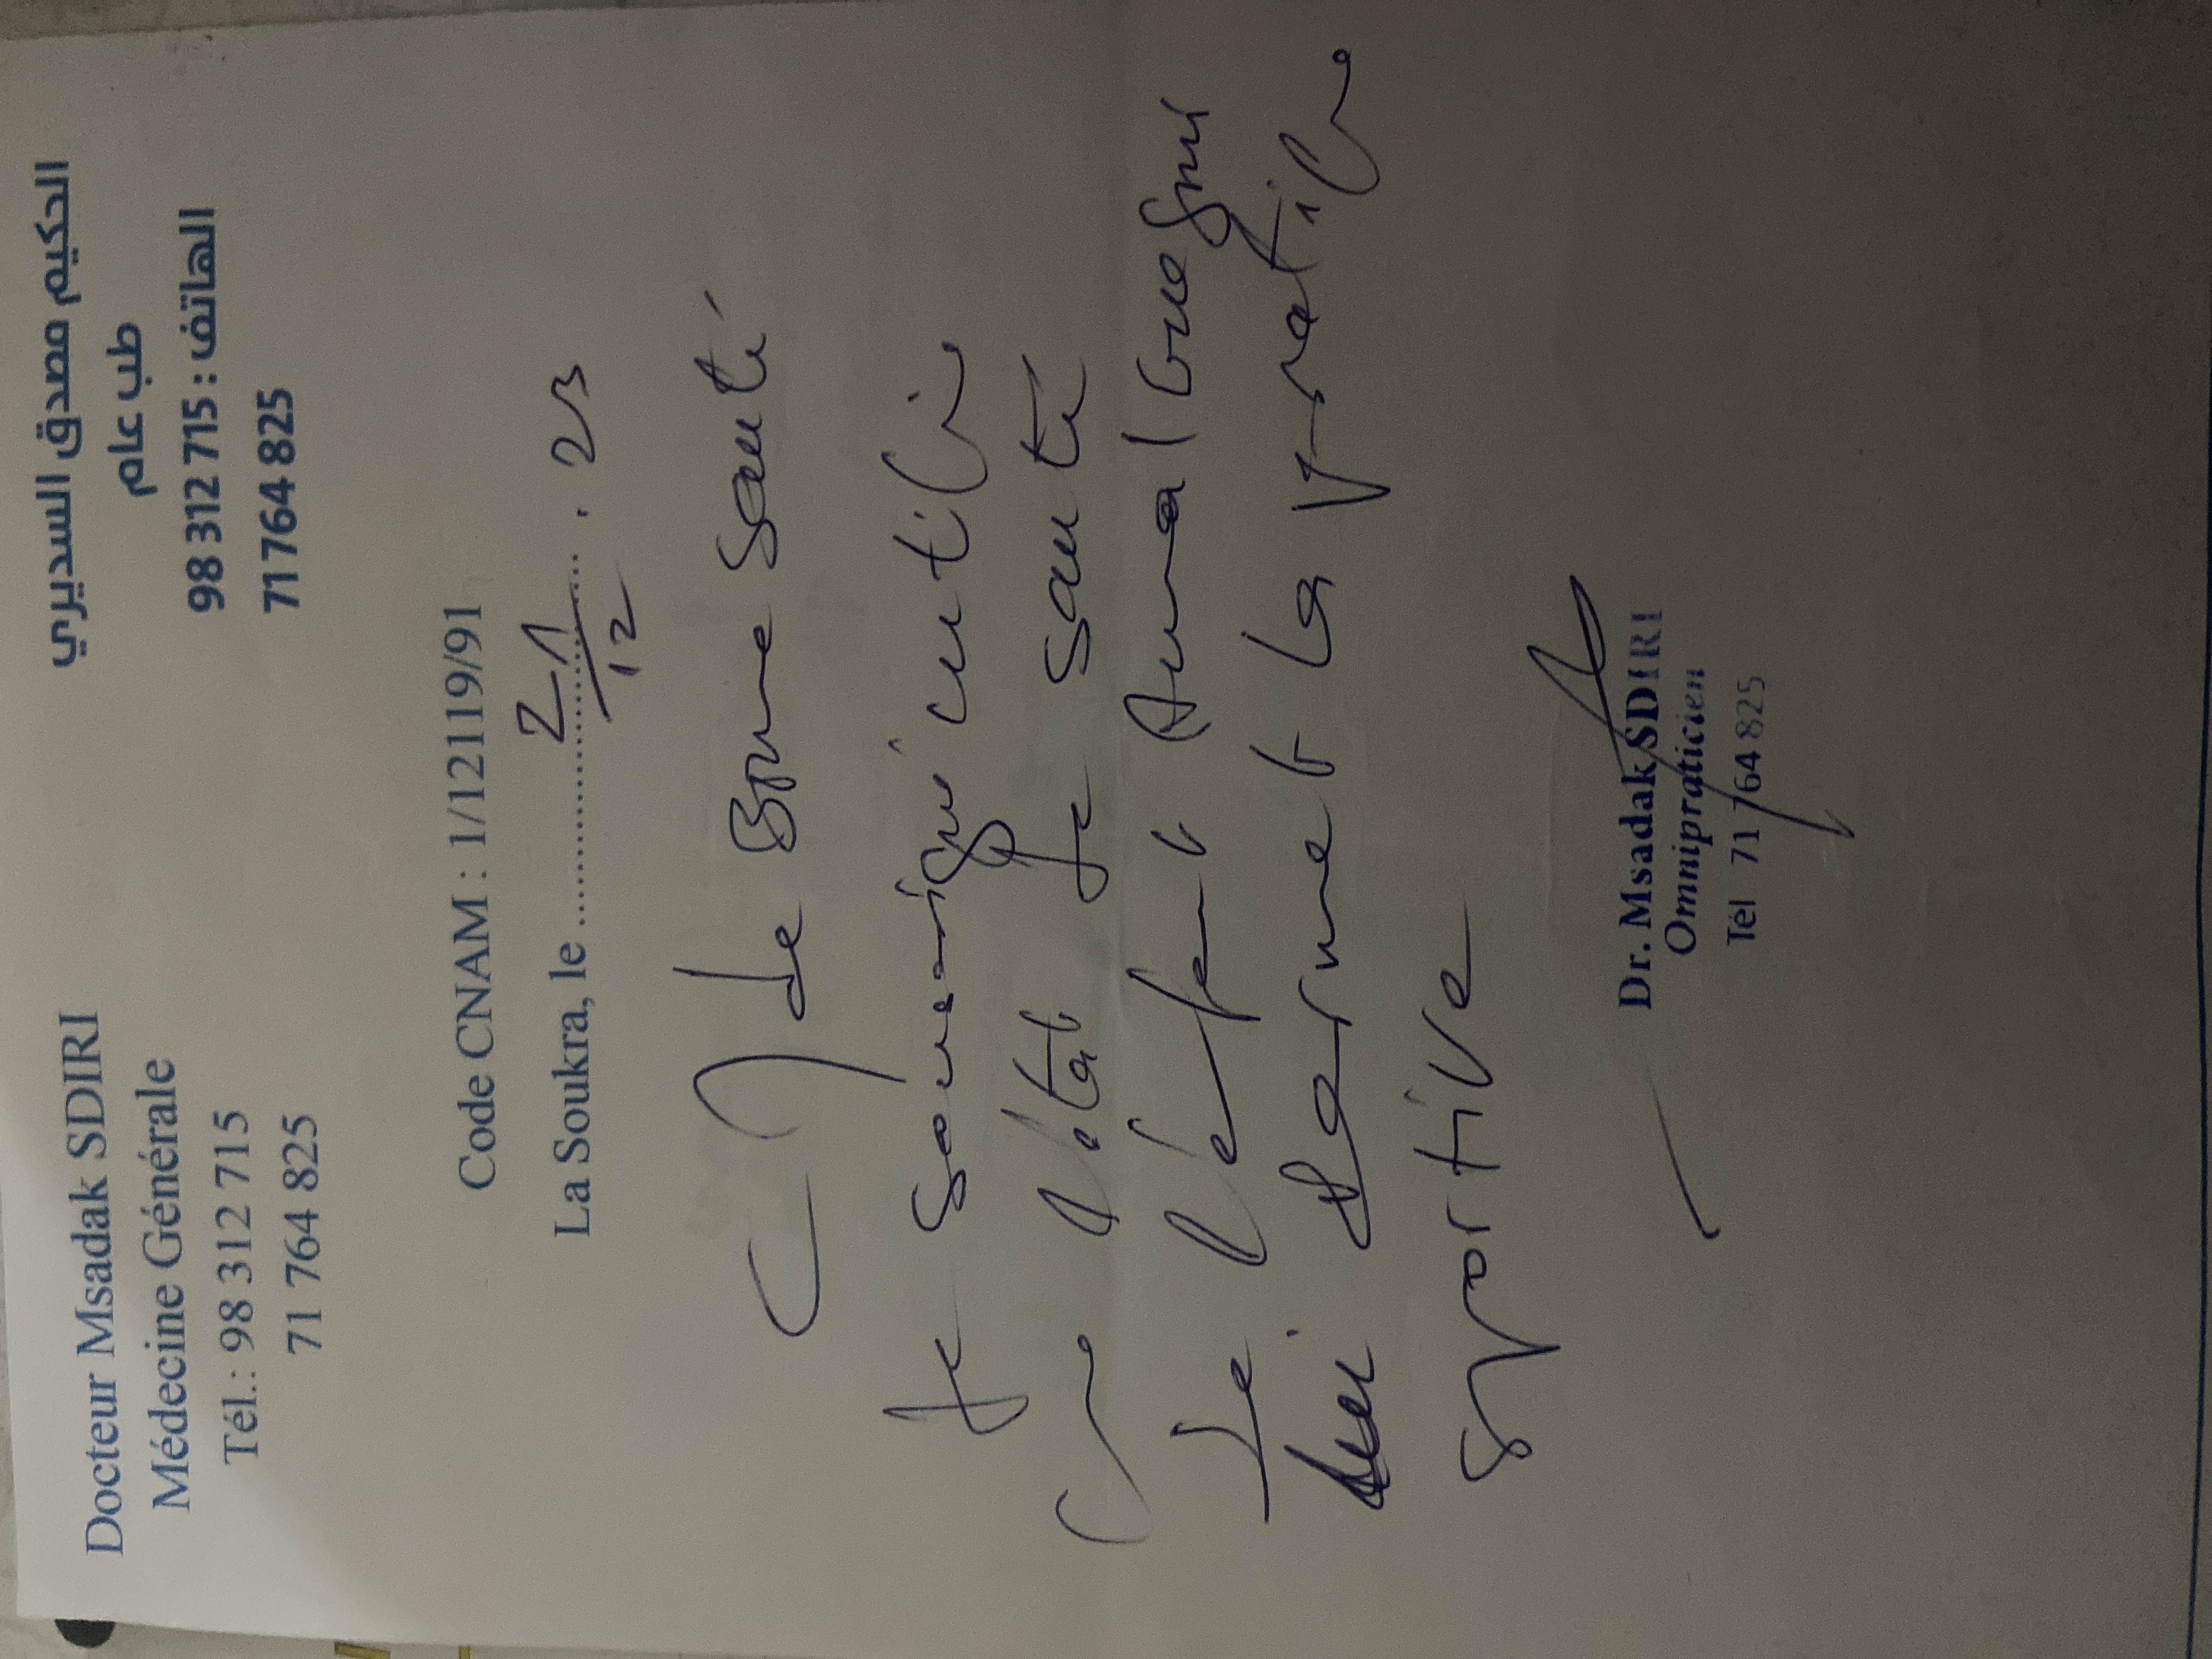 Docteur Msadak SDIRI
Médecine Générale
Tél.: 98 312 715
71 764 825
الحكيم مصدق السديري
طب عام
الهاتف : 98 312 715
71 764 825
Code CNAM : 1/12119/91
La Soukra, le 21/12.23
C M de Bonne Santé
Je soussigné certifie
que l'état de santé
de l'enfant Amal
lui permet la pratique
sportive
Dr. Msadak SDIRI
Omnipraticien
Tél 71 764 825